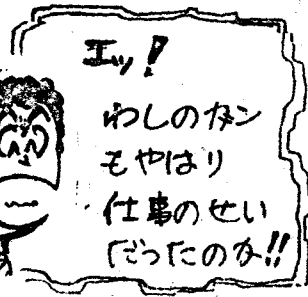 エッ!
わしのガン
もやはり
仕事のせい
だったのか!!